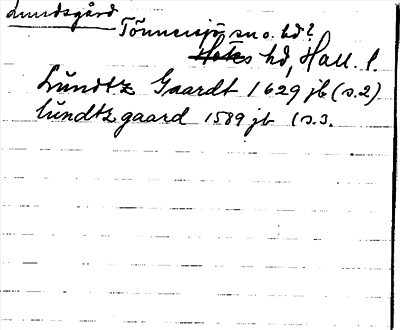 Lundsgård
Tönnersjö sn o. hd?
Höks hd, Hall. l.
Lundtz Gaardt 1629 jb (s. 2)
lundtz gaard 1589 jb (s. 3.